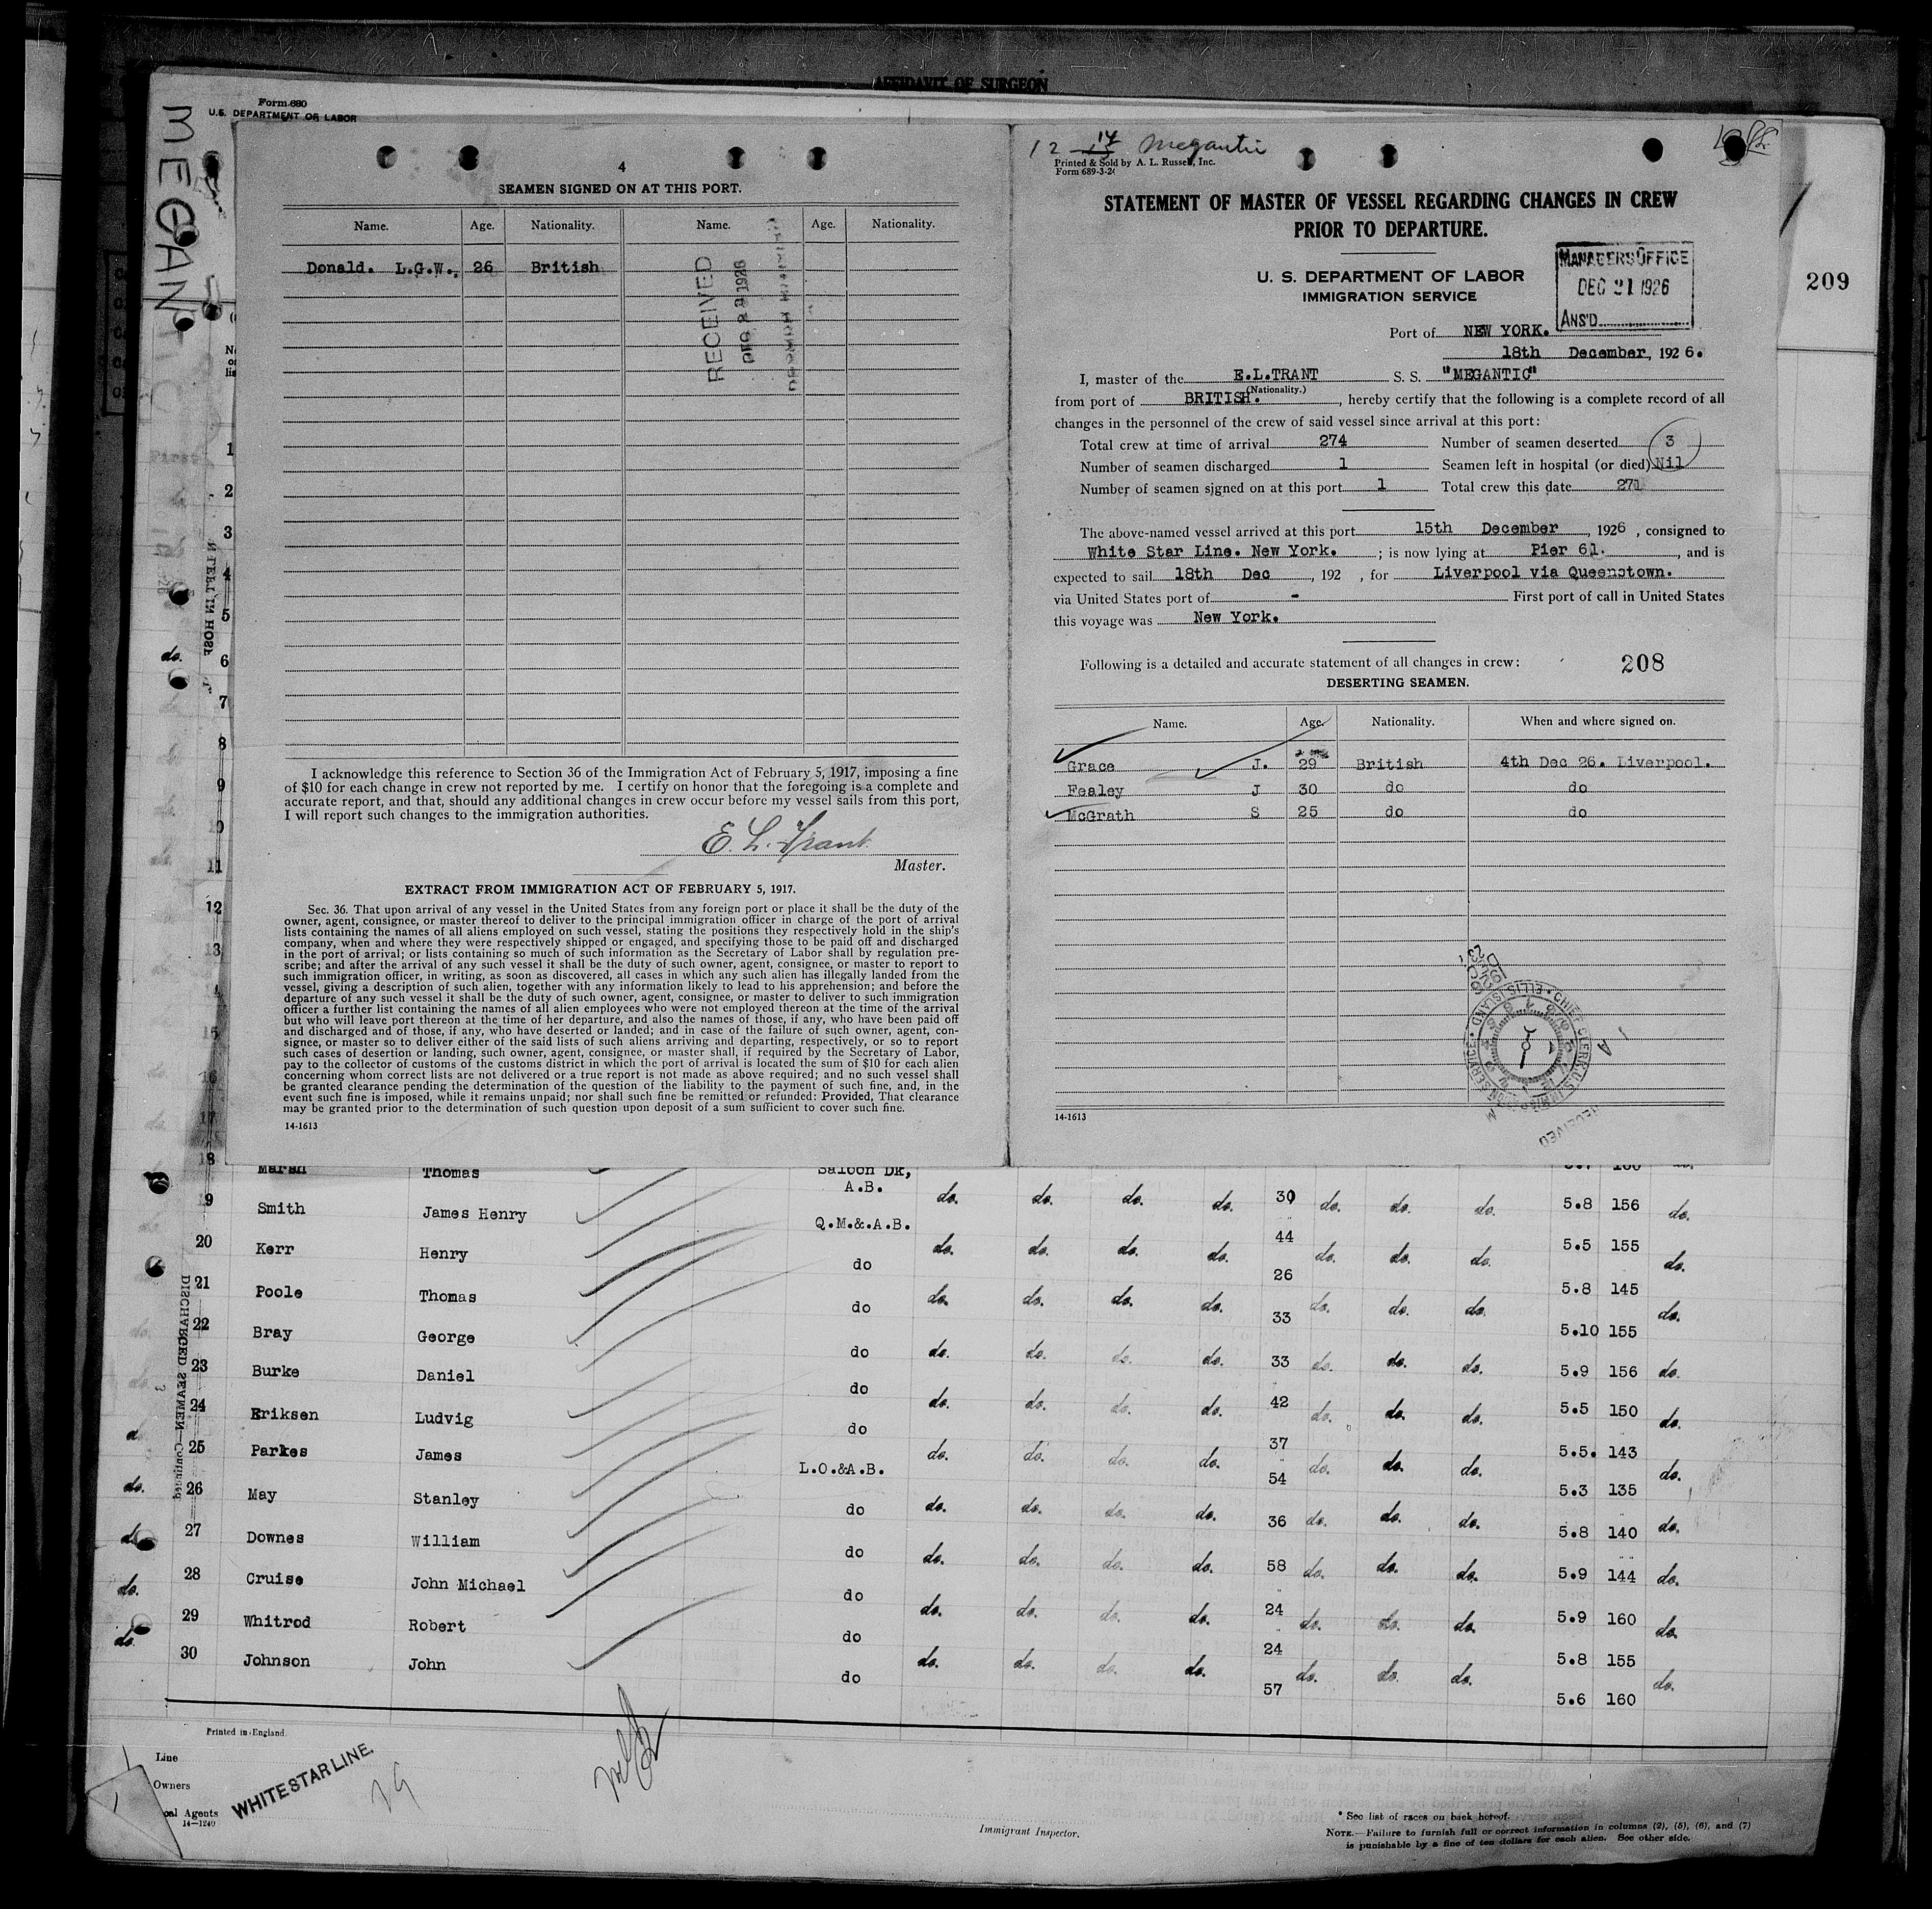 AFFIDAVIT OF SURGEON
Form 680
U.S. DEPARTMENT OF LABOR
MEGANTIC
4
SEAMEN SIGNED ON AT THIS PORT.
Name. Age. Nationality. Name. Age. Nationality.
Donald. L.G.W., 26 British
RECEIVED
DEC 1926
I acknowledge this reference to Section 36 of the Immigration Act of February 5, 1917, imposing a fine
of $10 for each change in crew not reported by me. I certify on honor that the foregoing is a complete and
accurate report, and that, should any additional changes in crew occur before my vessel sails from this port,
I will report such changes to the immigration authorities.
E. L. Trant
Master.
EXTRACT FROM IMMIGRATION ACT OF FEBRUARY 5, 1917.
Sec. 36. That upon arrival of any vessel in the United States from any foreign port or place it shall be the duty of the
owner, agent, consignee, or master thereof to deliver to the principal immigration officer in charge of the port of arrival
lists containing the names of all aliens employed on such vessel, stating the positions they respectively hold in the ship's
company, when and where they were respectively shipped or engaged, and specifying those to be paid off and discharged
in the port of arrival; or lists containing so much of such information as the Secretary of Labor shall by regulation pre-
scribe; and after the arrival of any such vessel it shall be the duty of such owner, agent, consignee, or master to report to
such immigration officer, in writing, as soon as discovered, all cases in which any such alien has illegally landed from the
vessel, giving a description of such alien, together with any information likely to lead to his apprehension; and before the
departure of any such vessel it shall be the duty of such owner, agent, consignee, or master to deliver to such immigration
officer a further list containing the names of all alien employees who were not employed thereon at the time of the arrival
but who will leave port thereon at the time of her departure, and also the names of those, if any, who have been paid off
and discharged and of those, if any, who have deserted or landed; and in case of the failure of such owner, agent, con-
signee, or master so to deliver either of the said lists of such aliens arriving and departing, respectively, or so to report
such cases of desertion or landing, such owner, agent, consignee, or master shall, if required by the Secretary of Labor,
pay to the collector of customs of the customs district in which the port of arrival is located the sum of $10 for each alien
concerning whom correct lists are not delivered or a true report is not made as above required; and no such vessel shall
be granted clearance pending the determination of the question of the liability to the payment of such fine, and, in the
event such fine is imposed, while it remains unpaid; nor shall such fine be remitted or refunded: Provided, That clearance
may be granted prior to the determination of such question upon deposit of a sum sufficient to cover such fine.
14-1613
12 14 Megantic
Printed & Sold by A. L. Russell, Inc.
Form 689-3-24
STATEMENT OF MASTER OF VESSEL REGARDING CHANGES IN CREW
PRIOR TO DEPARTURE.
U. S. DEPARTMENT OF LABOR
IMMIGRATION SERVICE
MANAGERS OFFICE
DEC 21 1926
ANS'D
209
Port of NEW YORK.
18th December, 1926.
I, master of the E.L.TRANT S. S. "MEGANTIC"
(Nationality.)
from port of BRITISH. , hereby certify that the following is a complete record of all
changes in the personnel of the crew of said vessel since arrival at this port:
Total crew at time of arrival 274 Number of seamen deserted 3
Number of seamen discharged 1 Seamen left in hospital (or died) Nil
Number of seamen signed on at this port 1 Total crew this date 271
The above-named vessel arrived at this port 15th December , 1926 , consigned to
White Star Line. New York. ; is now lying at Pier 61. , and is
expected to sail 18th Dec , 192 , for Liverpool via Queenstown.
via United States port of - First port of call in United States
this voyage was New York.
Following is a detailed and accurate statement of all changes in crew:
208
DESERTING SEAMEN.
Name. Age. Nationality. When and where signed on.
Grace J. 29 British 4th Dec 26. Liverpool.
Fealey J 30 do do
McGrath S 25 do do
CHIEF CLERK, U.S. IMMIGRATION SERVICE · ELLIS ISLAND
RECEIVED
14-1613
1
2
3
4
5
6
7
8
9
10
11
12
13
15
16
17
DISCHARGED SEAMEN—Continued
18 Marsh Thomas Saloon Dk,
19 Smith James Henry A.B. do. do. do. do. 30 do. do. do. 5.8 156 do.
20 Kerr Henry Q.M.&.A.B. do. do. do. do. 44 do. do. do. 5.5 155 do.
21 Poole Thomas do do. do. do. do. 26 do. do. do. 5.8 145 do.
22 Bray George do do. do. do. do. 33 do. do. do. 5.10 155 do.
23 Burke Daniel do do. do. do. do. 33 do. do. do. 5.9 156 do.
24 Eriksen Ludvig do do. do. do. do. 42 do. do. do. 5.5 150 do.
25 Parkes James do do. do. do. do. 37 do. do. do. 5.5. 143 do.
26 May Stanley L.O.&A.B. do. do. do. do. 54 do. do. do. 5.3 135 do.
27 Downes William do do. do. do. do. 36 do. do. do. 5.8 140 do.
28 Cruise John Michael do do. do. do. do. 58 do. do. do. 5.9 144 do.
29 Whitrod Robert do do. do. do. do. 24 do. do. do. 5.9 160 do.
30 Johnson John do 24 5.8 155
do 57 5.6 160
Printed in England.
Line
Owners
Local Agents
14-1240
WHITE STAR LINE.
19
Immigrant Inspector.
* See list of races on back hereof.
NOTE.—Failure to furnish full or correct information in columns (2), (5), (6), and (7)
is punishable by a fine of ten dollars for each alien. See other side.